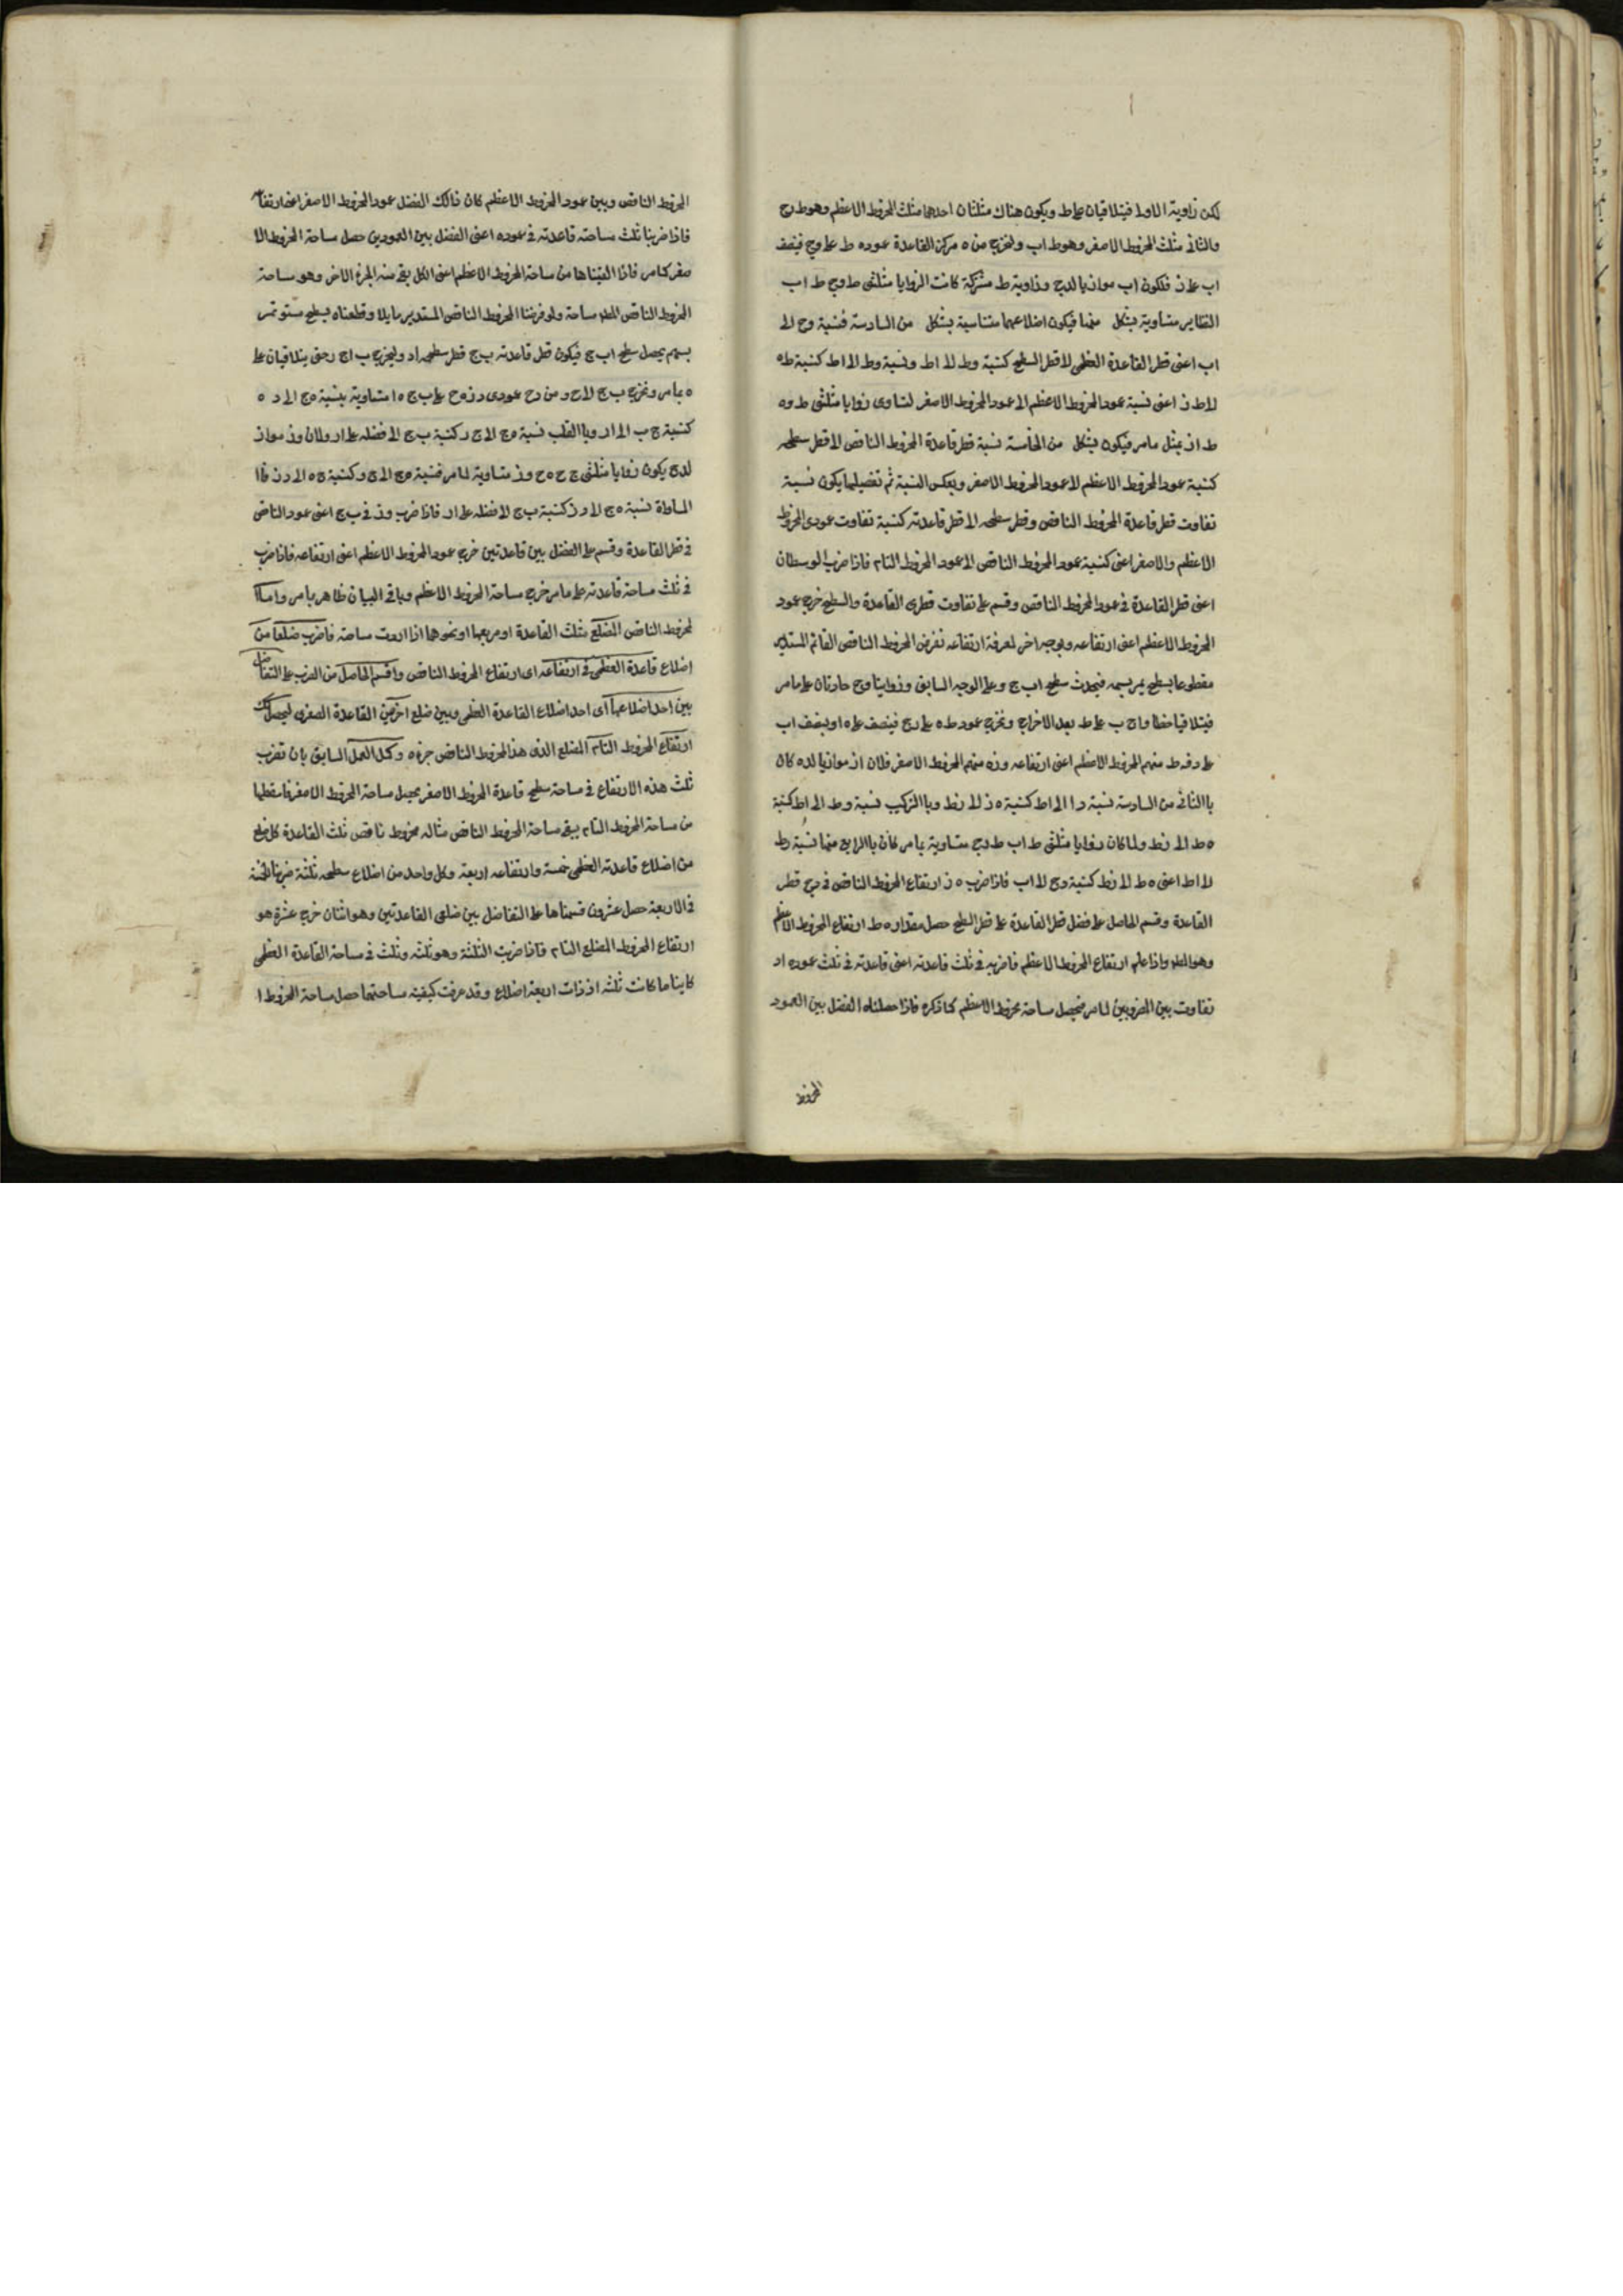 لكن زاوية الاولى فيتلاقيان على ط ويكون هناك مثلثان احدهما مثلث المخروط الاعظم وهو ط ج
والثانى مثلث المخروط الاصغر وهو ط اب ولنخرج من ه مركز القاعدة عود ه ط على وج فينصف
اب على ز فلكون اب موازيا لدج وزاوية ط مشتركة كانت الزوايا مثلثى ط وج ط اب
النظاير متساوية بشكل منها فيكون اضلاعهما متناسبة بشكل من السادسة فنسبة وج الى
اب اعنى قطر القاعدة العظمى الى قطر السطح كنسبة وط الى اط ونسبة وط الى اط كنسبة ط ه
الى ط ز اعنى نسبة عود المخروط الاعظم الى عود المخروط الاصغر لتساوى زوايا مثلثى ط وه
ط از بمثل ما مر فيكون بشكل من الخامسة نسبة قطر قاعدة المخروط الناقص الى قطر سطحه
كنسبة عود المخروط الاعظم الى عود المخروط الاصغر وبعكس النسبة ثم تفضيلها يكون نسبة
تفاوت قطر قاعدة المخروط الناقص وقطر سطحه الى قطر قاعدته كنسبة تفاوت عودى المخروط
الاعظم والاصغر اعنى كنسبة عود المخروط الناقص الى عود المخروط التام فاذا ضرب الوسطان
اعنى قطر القاعدة فى عود المخروط الناقص وقسم على تفاوت قطرى القاعدة والسطح خرج عود
المخروط الاعظم اعنى ارتفاعه وبوجه اخر لمعرفة ارتفاعه نفرض المخروط الناقص القائم المستدير
مقطوعا بسطح يمر بسهمه فيحدث سطح اب ج و على الوجه السابق وزوايتا وج حادتان على ما مر
فيتلاقيا خطا وا ج ب على ط بعد الاخراج ونخرج عمود ط ه على دج فينصف على ه اوينصف اب
على ز فه ط سهم المخروط الاعظم اعنى ارتفاعه وزه سهم المخروط الاصغر فلان از موازيا لده كان
باالثانى من السادسة نسبة دا الى اط كنسبة ه ز الى زط وباالتركيب نسبة وط الى اط كنسبة
ه ط الى زط ولما كان زوايا مثلثى ط اب ط دج متساوية بما مر كان باالرابع منها نسبة دط
الى اط اعنى ه ط الى زط كنسبة وج الى اب فاذا ضرب ه ز ارتفاع المخروط الناقص فى دج قطر
القاعدة وقسم الحاصل على فضل قطر القاعدة على قطر السطح حصل مقدار ه ط ارتفاع المخروط الاعظم
وهو المط واذا علم ارتفاع المخروط الاعظم فاضربه فى ثلث قاعدته اعنى قاعدته فى ثلث عوده اذ
تفاوت بين الضربين لما مر فيحصل ساحة مخروط الاعظم كما ذكره فاذا حصلناه الفضل بين العمود
المخروط
المخروط الناقص وبين عمود المخروط الاعظم كان ذالك الفضل عود المخروط الاصغر اعنى ارتفاعه
فاذا ضربنا ثلث مساحته قاعدته فى عوده اعنى الفضل بين العمودين حصل ساحة المخروط الا
صغر كما مر فاذا القيناها من ساحة المخروط الاعظم اعنى الكل بقى منه الجزء الاخر وهو ساحة
المخروط الناقص المط ساحة ولو فرضنا المخروط الناقص المستدير مايلا وقطعناه بسطح مستو تمر
بسهم يحصل سطح اب ج فيكون قطر قاعدته ب ج قطر سطحه اد وليخرج ب ا ج د حتى يتلاقيان على
ه بما مر ونخرج ب ج الى ح و من د ح عودى د ز ه ح على ب ج ه ا متساوية بنسبة ه ج الى د ه
كنسبة ج ب الى اد وباالقلب نسبة ه ج الى ج د كنسبة ب ج الى فضله على اد ولان وز مواز
لدج يكون زوايا مثلثى ج ح ه ج وز متساوية لما مر فنسبة ه ج الى ج و كنسبة ج ه الى د ز فاا
المساواة نسبة ه ج الى د ز كنسبة ب ج الى فضله على اد فاذا ضرب وز فى ب ج اعنى عود الناقص
فى قطر القاعدة وقسم على الفضل بين قاعدتين خرج عود المخروط الاعظم اعنى ارتفاعه فاذا ضرب
فى ثلث مساحة قاعدته على ما مر خرج ساحة المخروط الاعظم وباقى البيان ظاهر بما مر واما
المخروط الناقص المضلع مثلث القاعدة او مربعها او نحوهما اذا اردت ساحته فاضرب ضلعا من
اضلاع قاعدة العظمى فى ارتفاعه اى ارتفاع المخروط الناقص واقسم الحاصل من الضرب على التفاضل
بين احد اضلاعها اى احد اضلاع القاعدة العظمى وبين ضلع اخر من القاعدة الصغرى ليحصل لك
ارتفاع المخروط التام المضلع الذى هذا المخروط الناقص جزءه وكمل العمل السابق بان تضرب
ثلث هذه الارتفاع فى مساحة سطح قاعدة المخروط الاصغر يحصل ساحة المخروط الاصغر فاسقطها
من ساحة المخروط التام يبقى ساحة المخروط الناقص مثاله مخروط ناقص ثلث القاعدة كل ضلع
من اضلاع قاعدته العظمى خمسة وارتفاعه اربعة وكل واحد من اضلاع سطحه ثلثة ضربنا الخمسة
فى الاربعة حصل عشرون قسمناها على التفاضل بين ضلعى القاعدتين وهو اثنان خرج عشرة هو
ارتفاع المخروط المضلع التام فاذا ضربت الثلثة وهو ثلثه وثلث فى مساحة القاعدة العظمى
كاينا ما كانت ثلثه او ذات اربعة اضلاع وقد عرفت كيفيته ساحتها حصل ساحة المخروط ا